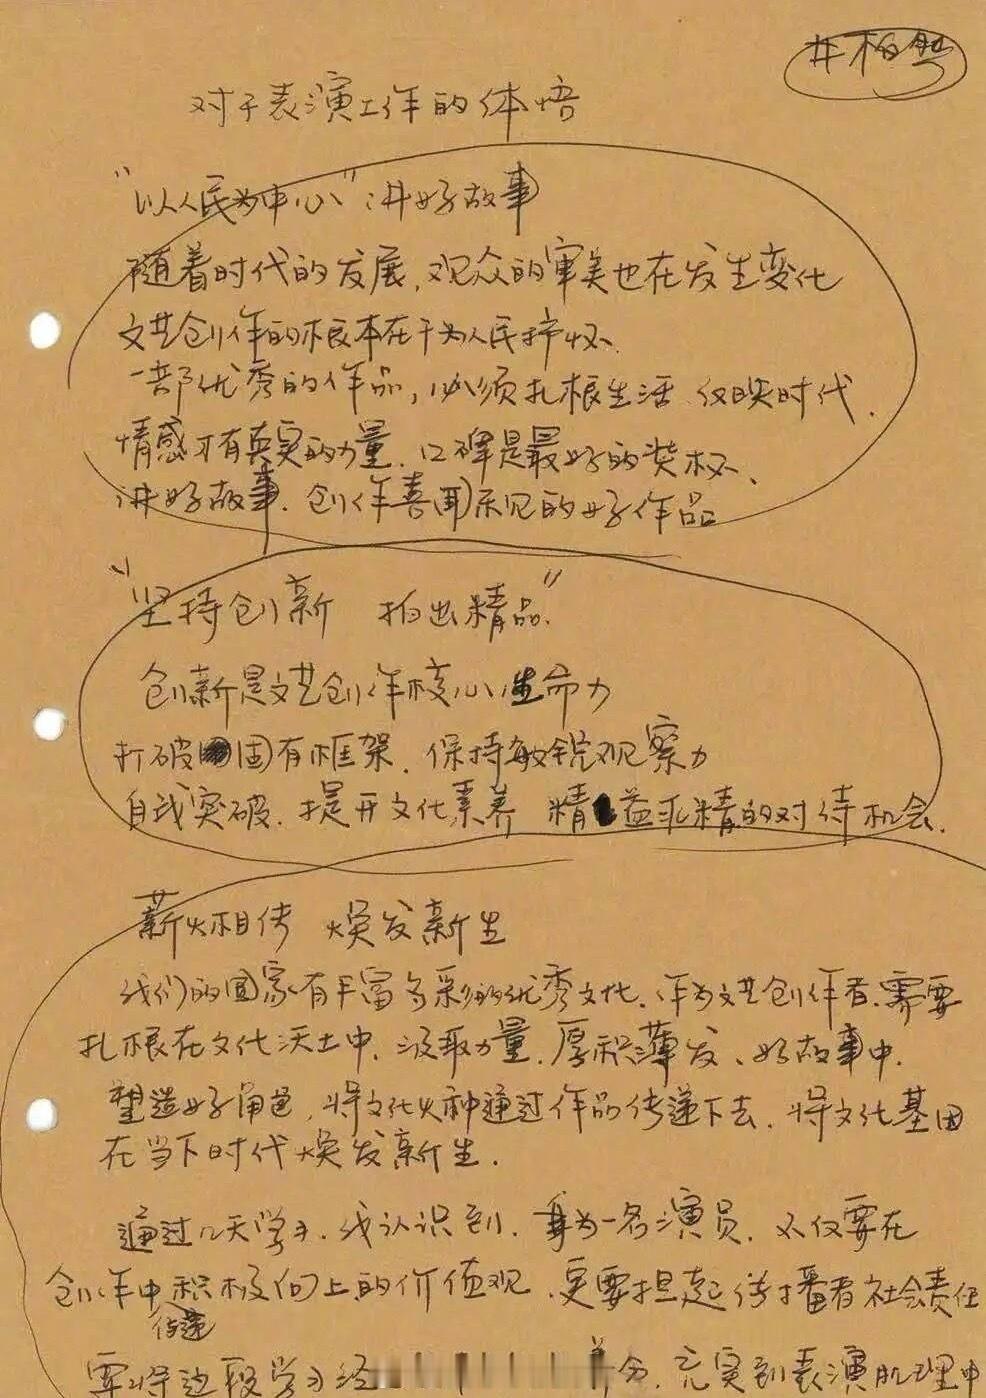 井柏然
对于表演工作的体悟
“以人民为中心”讲好故事
随着时代的发展,观众的审美也在发生变化
文艺创作的根本在于为人民抒怀.
一部优秀的作品,必须扎根生活.反映时代.
情感才有真实的力量.口碑是最好的奖杯、
讲好故事.创作喜闻乐见的好作品
“坚持创新 拍出精品”
创新是文艺创作核心生命力
打破固有框架.保持敏锐观察力
自我突破.提升文化素养 精益求精的对待机会.
薪火相传 焕发新生
我们的国家有丰富多彩的优秀文化、作为文艺创作者.需要
扎根在文化沃土中.汲取力量.厚积薄发、好故事中.
塑造好角色,将文化火种通过作品传递下去.将文化基因
在当下时代焕发新生.
通过几天学习.我认识到.身为一名演员.不仅要在
创作中传递积极向上的价值观.更要担起传播者社会责任
要将这段学习经 充实到表演肌理中